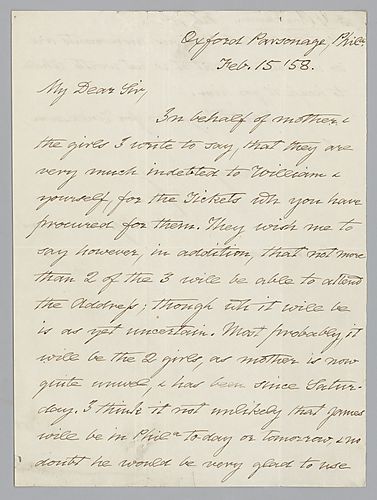 Oxford Parsonage, Phila
Feb. 15 '58.
My Dear Sir,
In behalf of mother &
the girls I write to say, that they are
very much indebted to William &
yourself for the Tickets wh you have
procured for them. They wish me to
say however, in addition, that not more
than 2 of the 3 will be able to attend
the Address; though wh it will be
is as yet uncertain. Most probably it
will be the 2 girls, as mother is now
quite unwel, & has been since Satur-
day. I think it not unlikely that James
will be in Phila to day or tomorrow, & no
doubt he would be very glad to use